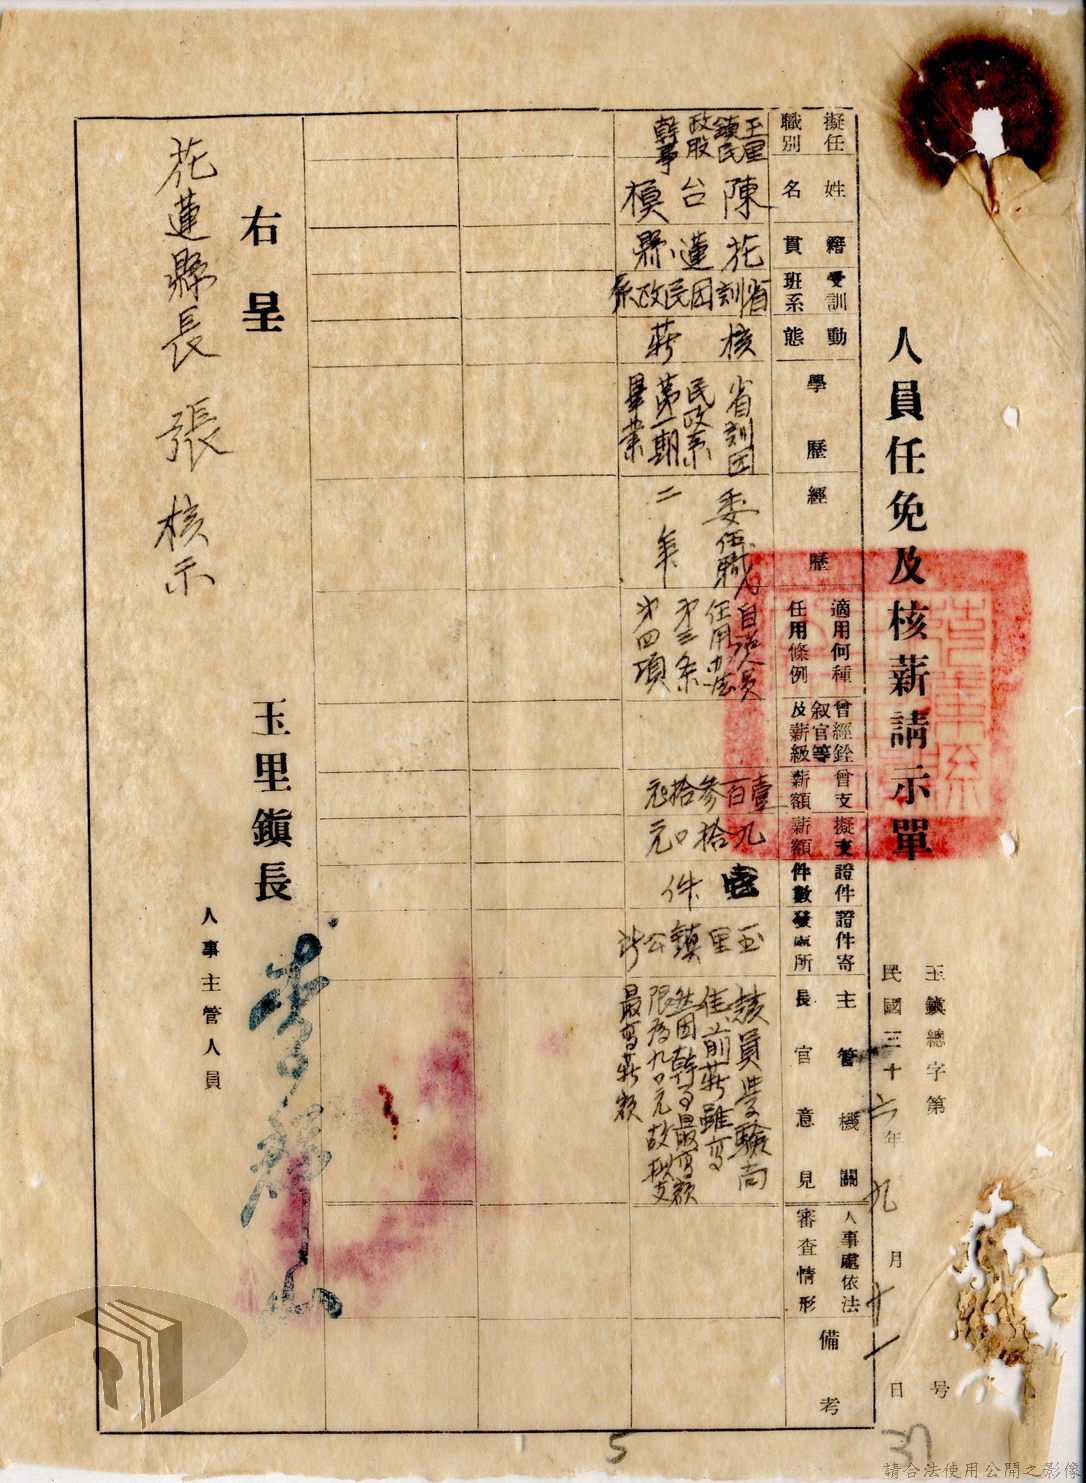 人員任免及核薪請示單
玉鎮總字第 号
民國三十六年九月十一日
擬任職別
姓名
籍貫
受訓班系
動態
學歷
經歷
適用何種任用條例
曾經銓叙官等及薪級
曾支薪額
擬支薪額
證件件數
證件寄發處所
主管機關長官意見
人事處依法審查情形
備考
玉里鎮民政股幹事
陳台模
花蓮縣
省訓団民政系
核薪
省訓团民政系第一期畢業
委任職二年
自治人員任用办法第三条第四項
壹百參拾元
九拾0元
壹件
玉里鎮公所
該員學驗尚佳前薪雖高然因幹事最高額限為九0元故擬支最高薪額
右呈
花蓮縣長 張 核示
玉里鎮長
人事主管人員
5
37
請合法使用公開之影像